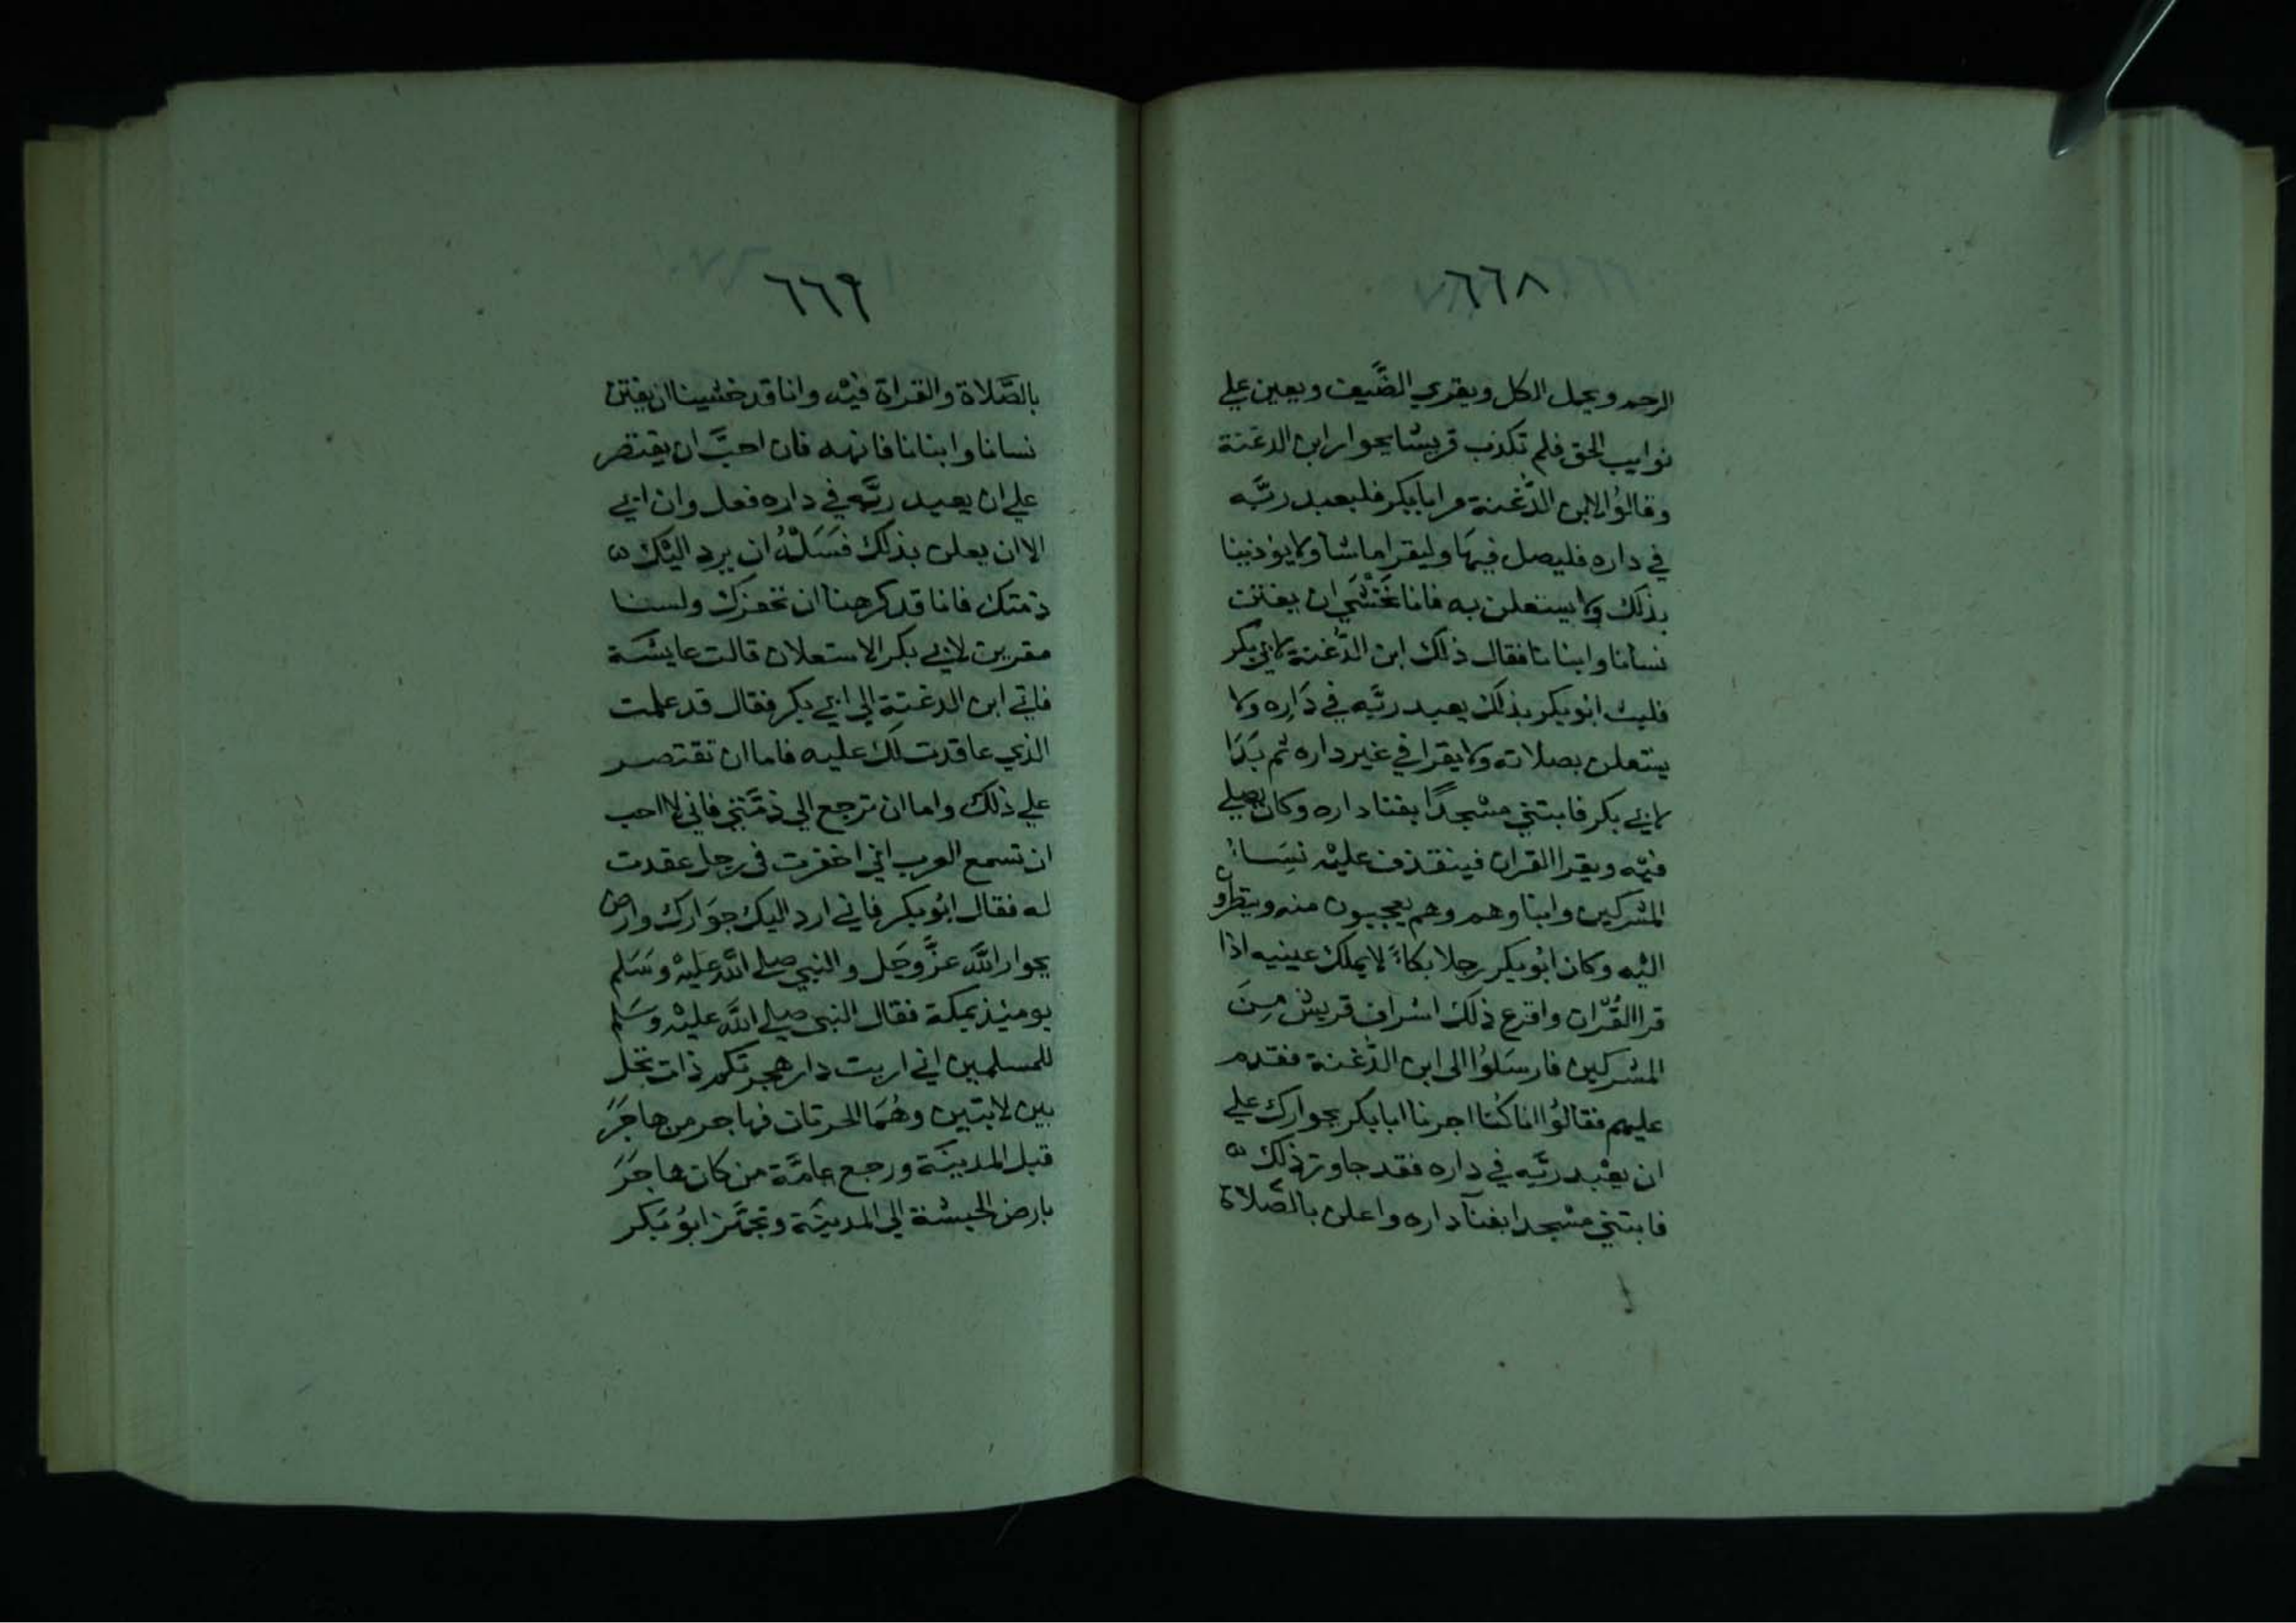 ٦٦٨
الرحم ويحمل الكل ويقري الضَّيف ويعين علي
نوايب الحق فلم تكذب قريشا بجوار ابن الدغنة
وقالوُا لابن الدَّغنة مر ابابكر فليعبد ربَّه
في داره فليصل فيهَا وليقرا ماشا ولا يوذينا
بذلك ولا يستعلن به فانا نَخْشَي ان يفتن
نسانا وابنانا فقال ذلك ابن الدَّغنة لابي بكر
فلبث ابُوبكر بذلك يعبد ربَّه في دَارِه ولا
يستعلن بصلاته ولا يقرا في غير داره ثم بَدَا
لابي بكر فابتني مسْجدًا بفنا داره وكان يصلي
فيْه ويقرا القران فينقذف عليْه نِسَاءُ
المشركين وابناوهم وهم يعجبون منه وينظرو
اليْه وكان ابُوبكر رجلا بكاءً لا يملك عينيه اذا
قرا القُرْان وافزع ذلك اشراف قريش مِنَ
المشركين فارسَلوُا الى ابن الدَّغنة فقدم
عليهم فقالوُا انا كُنا اجرنا ابابكر بجوارك علي
ان يعْبد ربَّه في داره فقد جاوز ذلك ه
فابتني مسْجدا بفنآ داره واعلن بالصَّلاة
٦٦٩
بالصَّلاة والقراة فيْه وانا قد خشينا ان يفتن
نسانا وابنانا فانهه فان احبَّ ان يقتصر
علي ان يعبد ربَّه في داره فعل وان ابي
الا ان يعلن بذلك فسَلْهُ ان يرد اليْك ه
ذمتك فانا قد كرهنا ان نخفرك ولسنا
مقرين لابي بكر الاستعلان قالت عايشة
فاتي ابن الدغنة الي ابي بكر فقال قد علمت
الذي عاقدت لك عليه فاما ان تقتصر
علي ذلك واما ان ترجع الي ذمَّتي فاني لا احب
ان تسمع العرب اني اخفرت في رجل عقدت
له فقال ابُوبكر فاني ارد اليك جوَارك وارض
بجوار اللَّه عزَّوجَل والنبي صلي اللَّه عليْه وسَلم
يومئذ بمكة فقال النبي صلي اللَّه عليْه وسَلم
للمسلمين اني اريت دار هجرتكم ذات نخل
بين لابتين وهُمَا الحرتان فهاجر من هاجَرَ
قبل المدينَة ورجع عامَّة من كان هاجَرَ
بارض الحبشة الي المدينَة وتجهَّز ابوُ بَكر